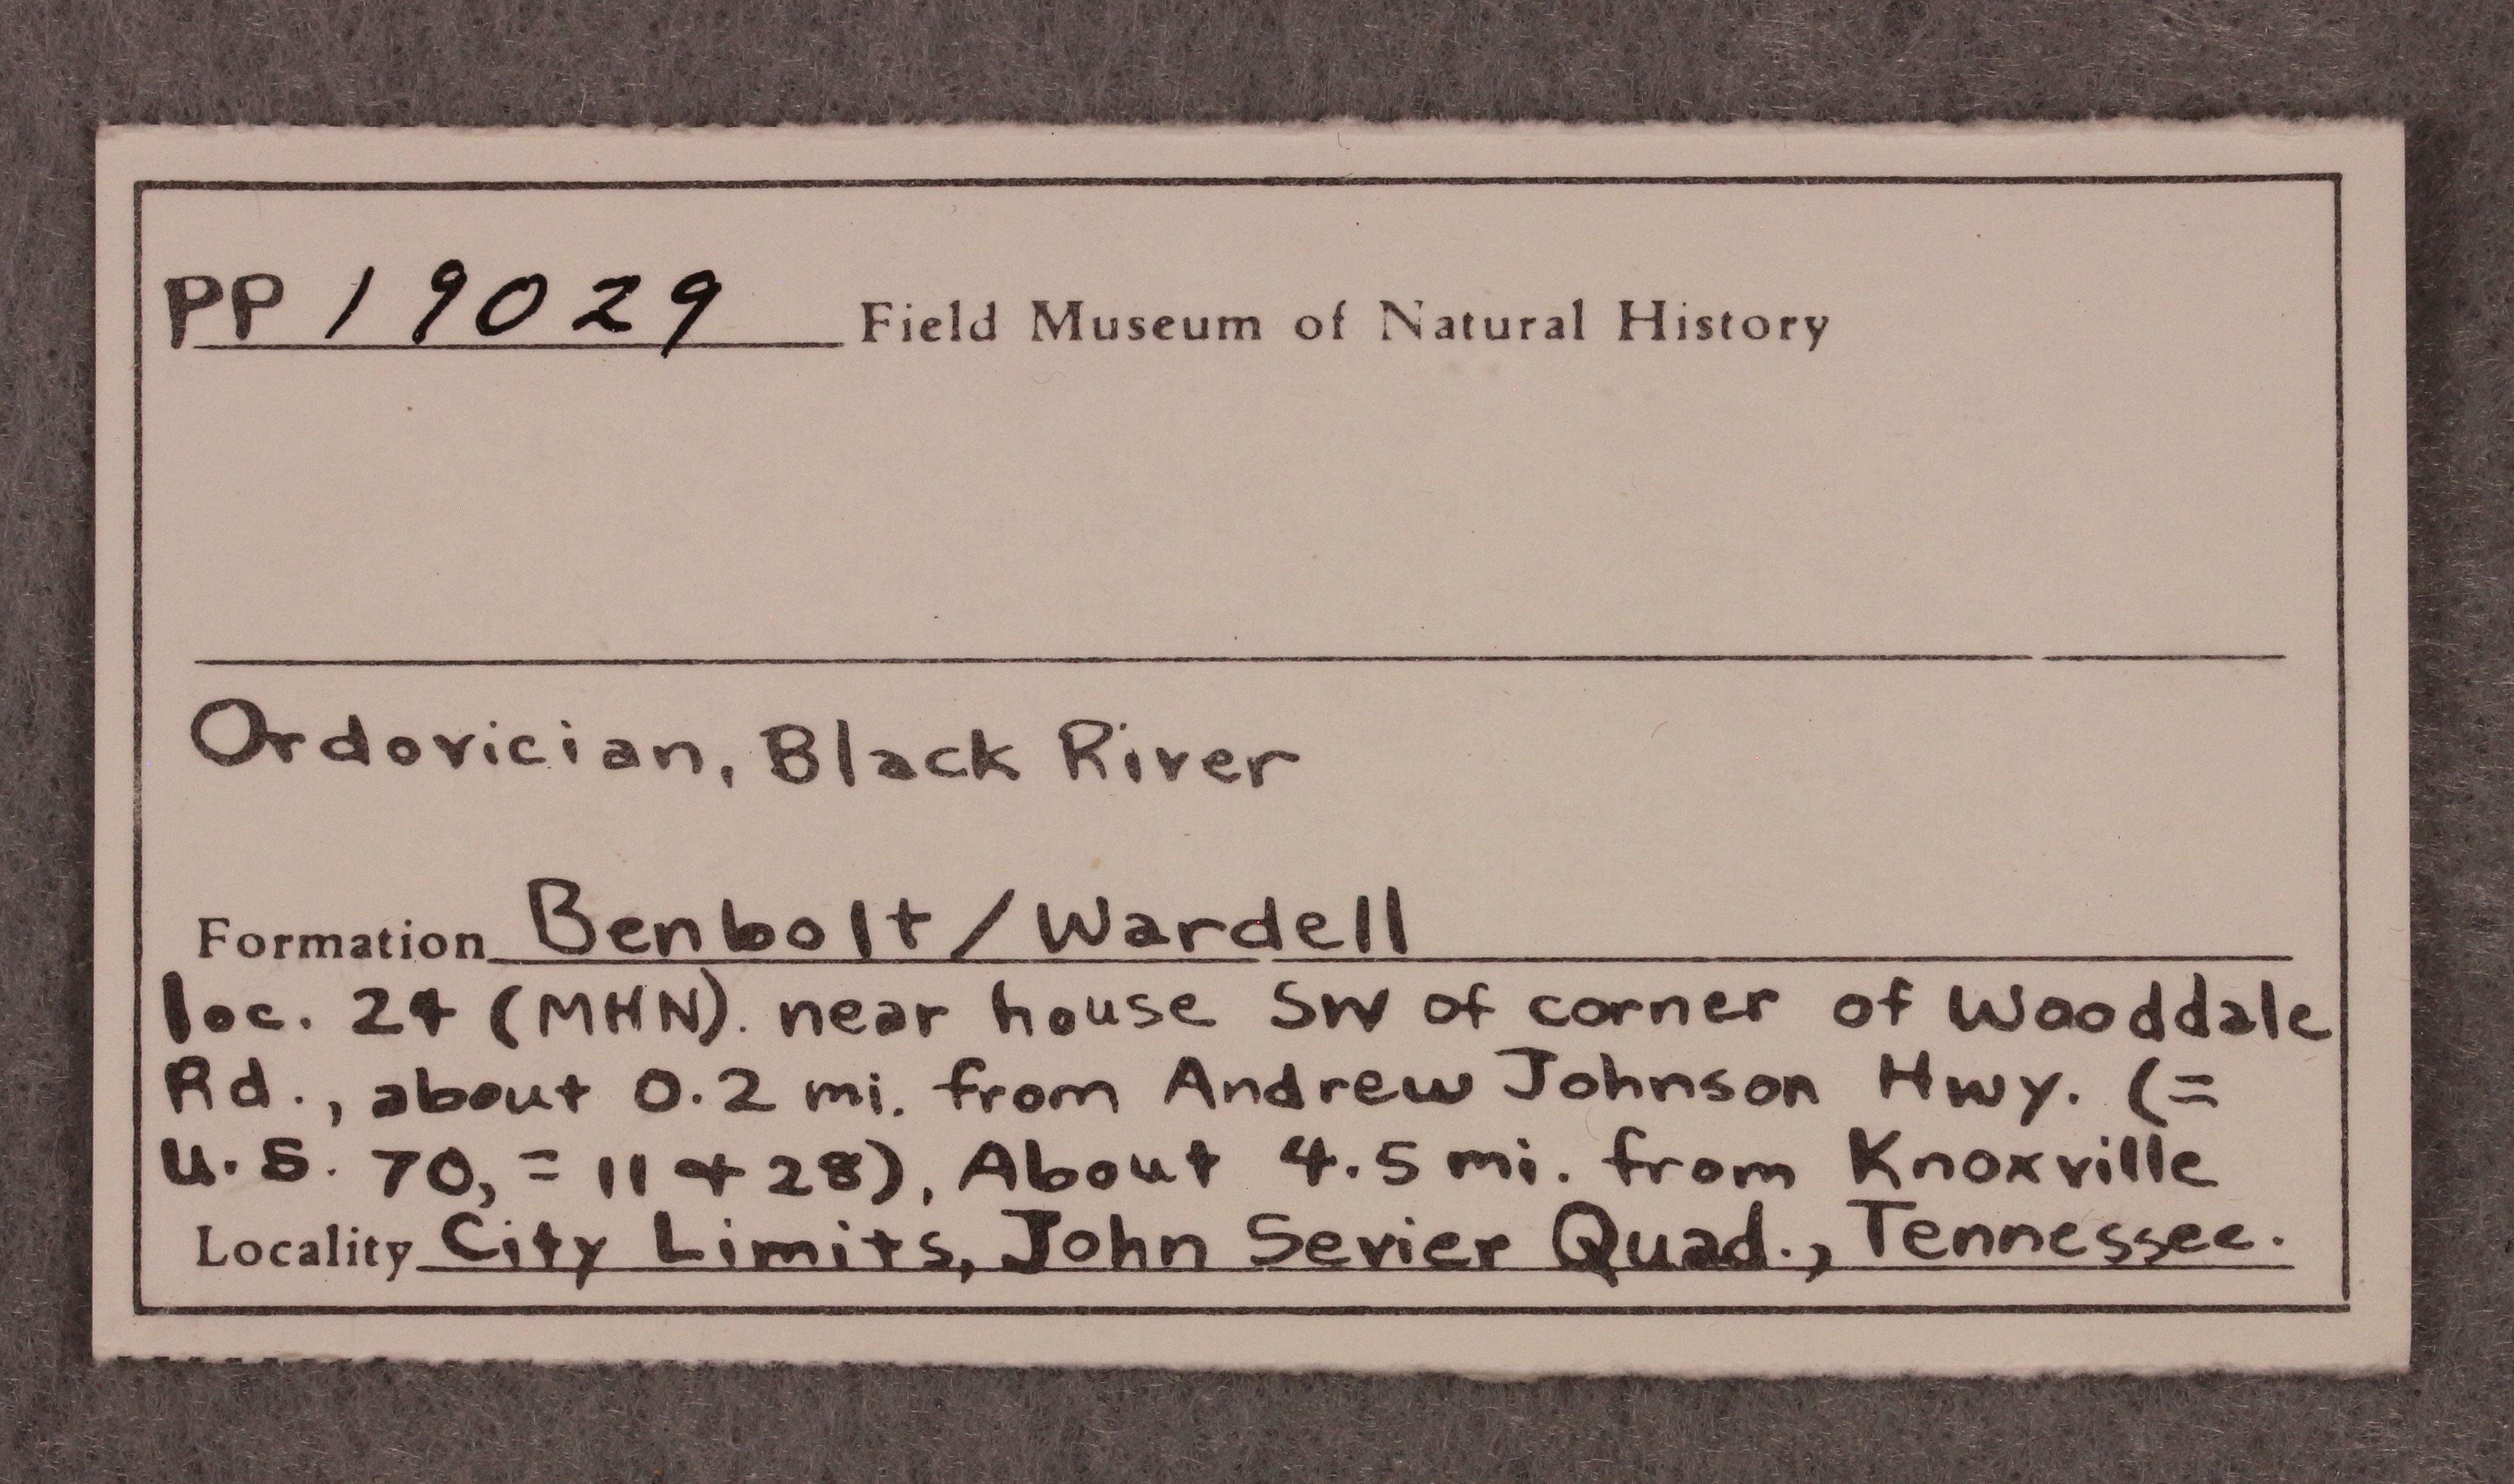 PP 19029 Field Museum of Natural History
Ordovician, Black River
Formation Benbolt/Wardell
loc. 24 (MHN). near house SW of corner of Wooddale
Rd., about 0.2 mi. from Andrew Johnson Hwy. (=
U.S. 70, = 11 + 28), About 4.5 mi. from Knoxville
Locality City Limits, John Sevier Quad., Tennessee.